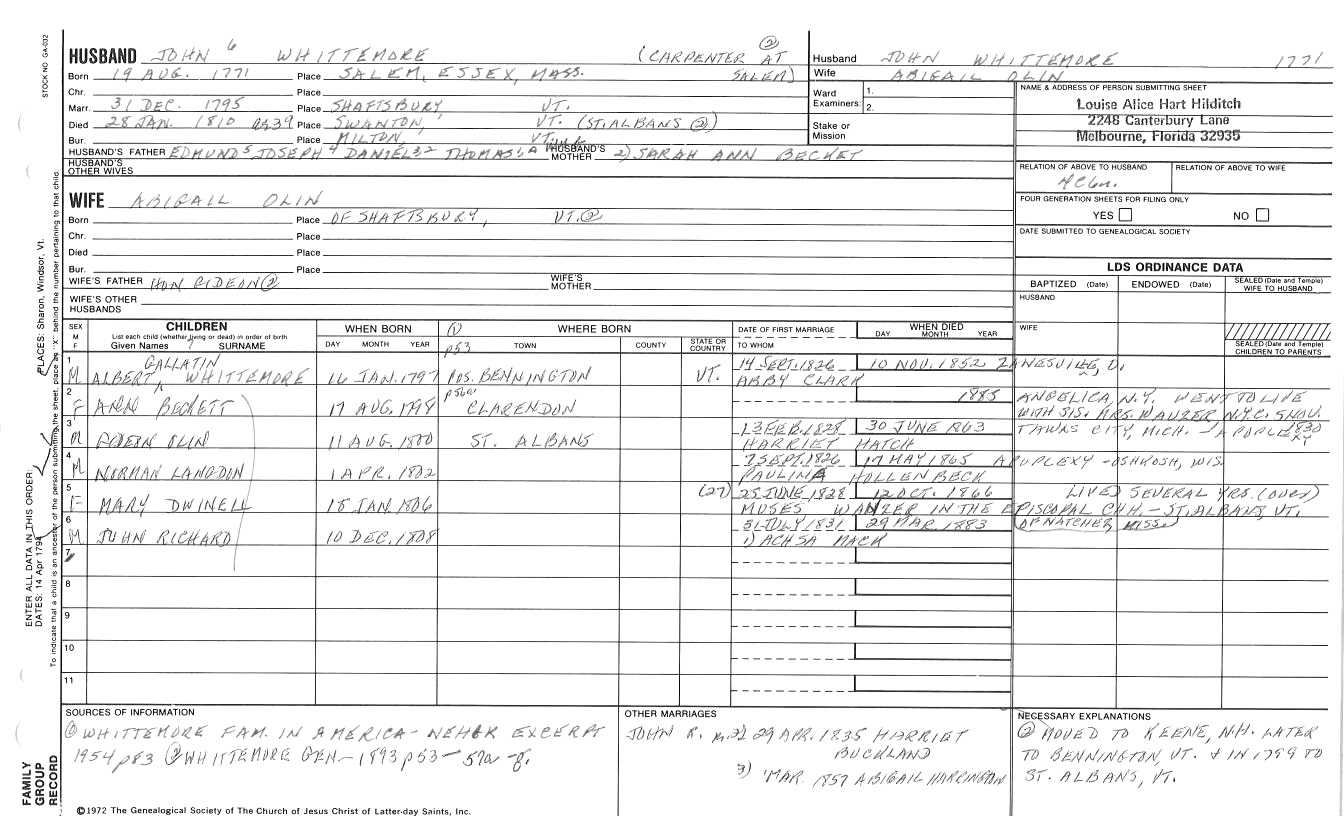 STOCK NO. GA-032
HUSBAND JOHN 6 WHITTEMORE (CARPENTER AT ②
Born 19 AUG. 1771 Place SALEM, ESSEX, MASS. SALEM)
Chr. Place
Marr. 31 DEC. 1795 Place SHAFTSBURY VT.
Died 28 JAN. 1810 Place SWANTON, VT. (ST. ALBANS ②)
Bur. Place MILTON, VT.
HUSBAND'S FATHER EDMUND 5 JOSEPH 4 DANIEL 3 2 THOMAS HUSBAND'S MOTHER 2) SARAH ANN BECKET
HUSBAND'S OTHER WIVES
Husband JOHN WHITTEMORE 1771
Wife ABIGAIL OLIN
Ward Examiners: 1.
2.
Stake or Mission
NAME & ADDRESS OF PERSON SUBMITTING SHEET
Louise Alice Hart Hilditch
2248 Canterbury Lane
Melbourne, Florida 32935
RELATION OF ABOVE TO HUSBAND RELATION OF ABOVE TO WIFE
FOUR GENERATION SHEETS FOR FILING ONLY
YES NO
DATE SUBMITTED TO GENEALOGICAL SOCIETY
WIFE ABIGAIL OLIN
Born Place OF SHAFTSBURY, VT. ②
Chr. Place
Died Place
Bur. Place
WIFE'S FATHER HON GIDEON ② WIFE'S MOTHER
WIFE'S OTHER HUSBANDS
LDS ORDINANCE DATA
BAPTIZED (Date) ENDOWED (Date) SEALED (Date and Temple) WIFE TO HUSBAND
HUSBAND
WIFE
SEALED (Date and Temple) CHILDREN TO PARENTS
SEX M F
CHILDREN
List each child (whether living or dead) in order of birth
Given Names 7 SURNAME
WHEN BORN
DAY MONTH YEAR
① p53 WHERE BORN
TOWN COUNTY STATE OR COUNTRY
DATE OF FIRST MARRIAGE
TO WHOM
WHEN DIED
DAY MONTH YEAR
1 M ALBERT GALLATIN WHITTEMORE 16 JAN. 1797 POS. BENNINGTON VT. 14 SEPT. 1826 10 NOV. 1852 ZANESVILLE, O.
ABBY CLARK
2 F ANN BECKETT 17 AUG. 1798 CLARENDON 1885 ANGELICA, N.Y. WENT TO LIVE
WITH SIS. MRS. WANZER N.Y.C.
3 M GIDEON OLIN 11 AUG. 1800 ST. ALBANS 13 FEB. 1828 30 JUNE 1863 TAWAS CITY, MICH. - APOPLEXY
HARRIET HATCH
4 M NORMAN LANGDON 1 APR. 1802 7 SEPT. 1826 17 MAY 1865 APOPLEXY - OSHKOSH, WIS.
PAULINA HOLLENBECK
5 F MARY DWINELL 18 JAN 1806 (27) 25 JUNE 1828 12 OCT. 1866 LIVED SEVERAL YRS. (OVER)
MOSES WANZER IN THE EPISCOPAL CHH. - ST. ALBANS, VT.
6 M JOHN RICHARD 10 DEC. 1808 31 JULY 1831 29 MAR. 1883 (OF NATCHEZ, MISS.)
1) ACHSA MACK
7
8
9
10
11
SOURCES OF INFORMATION
① WHITTEMORE FAM. IN AMERICA - NEHER EXCERPT
1954 p83 ② WHITTEMORE GEN - 1893 p53 - 57a -
OTHER MARRIAGES
JOHN R. m. 2) 29 APR. 1835 HARRIET
BUCKLAND
3) MAR. 1857 ABIGAIL HARRINGTON
NECESSARY EXPLANATIONS
② MOVED TO KEENE, N.H. LATER
TO BENNINGTON, VT. & IN 1799 TO
ST. ALBANS, VT.
ENTER ALL DATA IN THIS ORDER:
PLACES: Sharon, Windsor, Vt.
DATES: 14 Apr 1794
To indicate that a child is an ancestor of the person submitting the sheet, place an "X" behind the number pertaining to that child.
FAMILY GROUP RECORD
©1972 The Genealogical Society of The Church of Jesus Christ of Latter-day Saints, Inc.